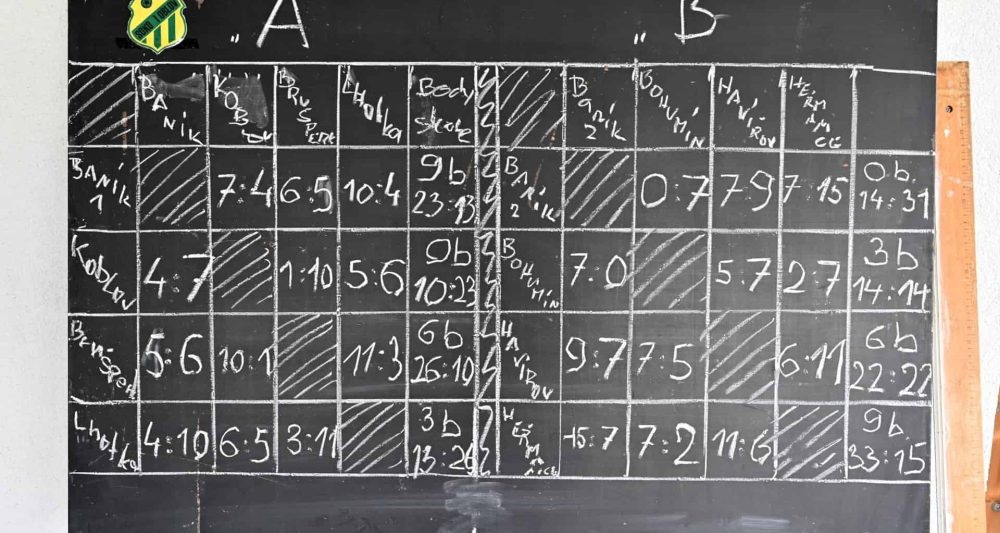 „A „B
BANÍK KOBLOV BRUSPERK LHOTKA Body skóre BANÍK 2 BOHUMÍN HAVÍŘOV
BANÍK 1 7:4 6:5 10:4 9b 23:13 BANÍK 2 0:7 7:9 7:15 0b. 14:31
Koblov 4:7 1:10 5:6 0b 10:23 BOHUMÍN 7:0 5:7 2:7 3b 14:14
5:6 10:1 11:3 6b 26:10 HAVÍŘOV 9:7 7:5 6:11 6b 22:22
Lhotka 4:10 6:5 3:11 3b 13:26 15:7 7:2 11:6 9b. 33:15